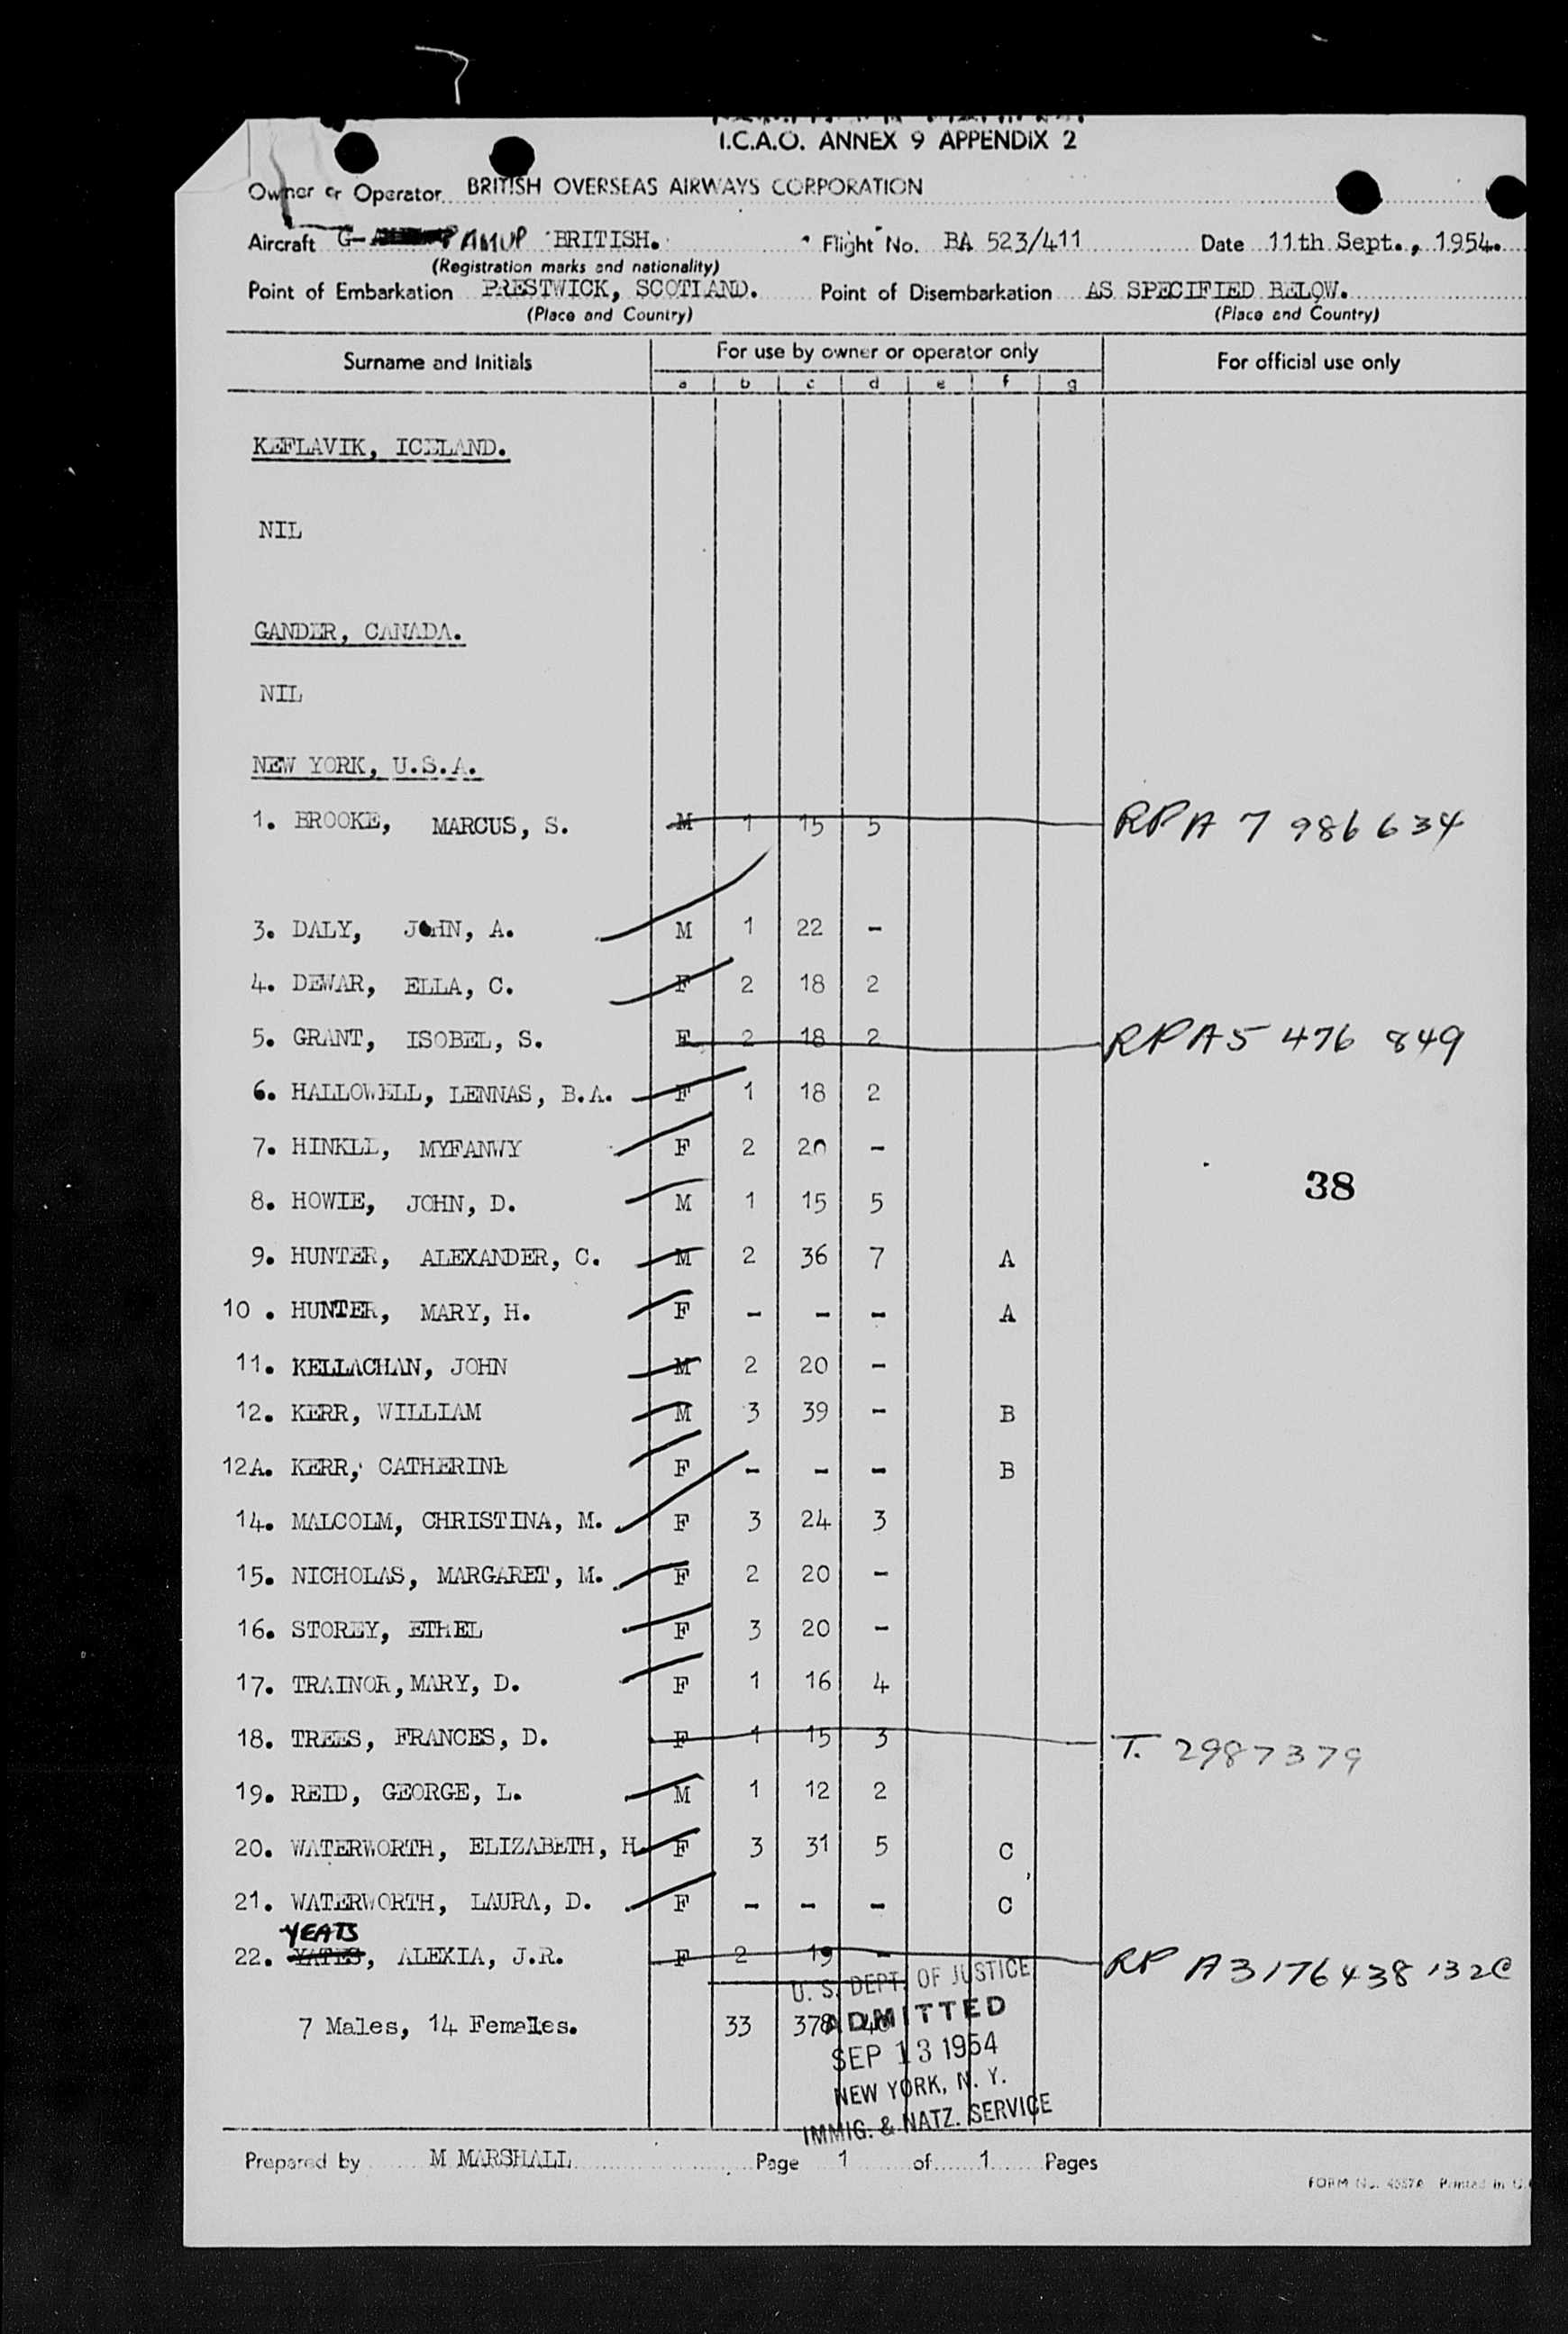 I.C.A.O. ANNEX 9 APPENDIX 2
Owner or Operator BRITISH OVERSEAS AIRWAYS CORPORATION
Aircraft G- AMUP BRITISH. Flight No. BA 523/411 Date 11th Sept., 1954.
(Registration marks and nationality)
Point of Embarkation PRESTWICK, SCOTLAND. Point of Disembarkation AS SPECIFIED BELOW.
(Place and Country) (Place and Country)
Surname and Initials For use by owner or operator only For official use only
a b c d e f g
KEFLAVIK, ICELAND.
NIL
GANDER, CANADA.
NIL
NEW YORK, U.S.A.
1. BROOKE, MARCUS, S. M 1 15 5 RP A 7 986 634
3. DALY, JOHN, A. M 1 22 -
4. DEWAR, ELLA, C. F 2 18 2
5. GRANT, ISOBEL, S. F 2 18 2 RP A5 476 849
6. HALLOWELL, LENNAS, B.A. F 1 18 2
7. HINKLE, MYFANWY F 2 20 -
38
8. HOWIE, JOHN, D. M 1 15 5
9. HUNTER, ALEXANDER, C. M 2 36 7 A
10. HUNTER, MARY, H. F - - - A
11. KELLACHAN, JOHN M 2 20 -
12. KERR, WILLIAM M 3 39 - B
12A. KERR, CATHERINE F - - - B
14. MALCOLM, CHRISTINA, M. F 3 24 3
15. NICHOLAS, MARGARET, M. F 2 20 -
16. STOREY, ETHEL F 3 20 -
17. TRAINOR, MARY, D. F 1 16 4
18. TREES, FRANCES, D. F 1 15 3 T. 2987379
19. REID, GEORGE, L. M 1 12 2
20. WATERWORTH, ELIZABETH, H. F 3 31 5 C
21. WATERWORTH, LAURA, D. F - - - C
YEATS
22. YATES, ALEXIA, J.R. F 2 19 - RP A3176438 132C
7 Males, 14 Females. 33 378 40
U. S. DEPT. OF JUSTICE
ADMITTED
SEP 13 1954
NEW YORK, N. Y.
IMMIG. & NATZ. SERVICE
Prepared by M MARSHALL Page 1 of 1 Pages
FORM No. Printed in